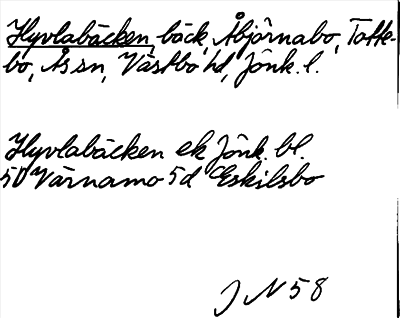 Hyvlabäcken, bäck, Åbjörnabo, Totte-
bo, Ås sn, Västbo hd, Jönk. l.
Hyvlabäcken ek Jönk. bl.
5D Värnamo 5d Eskilsbo
J N 58